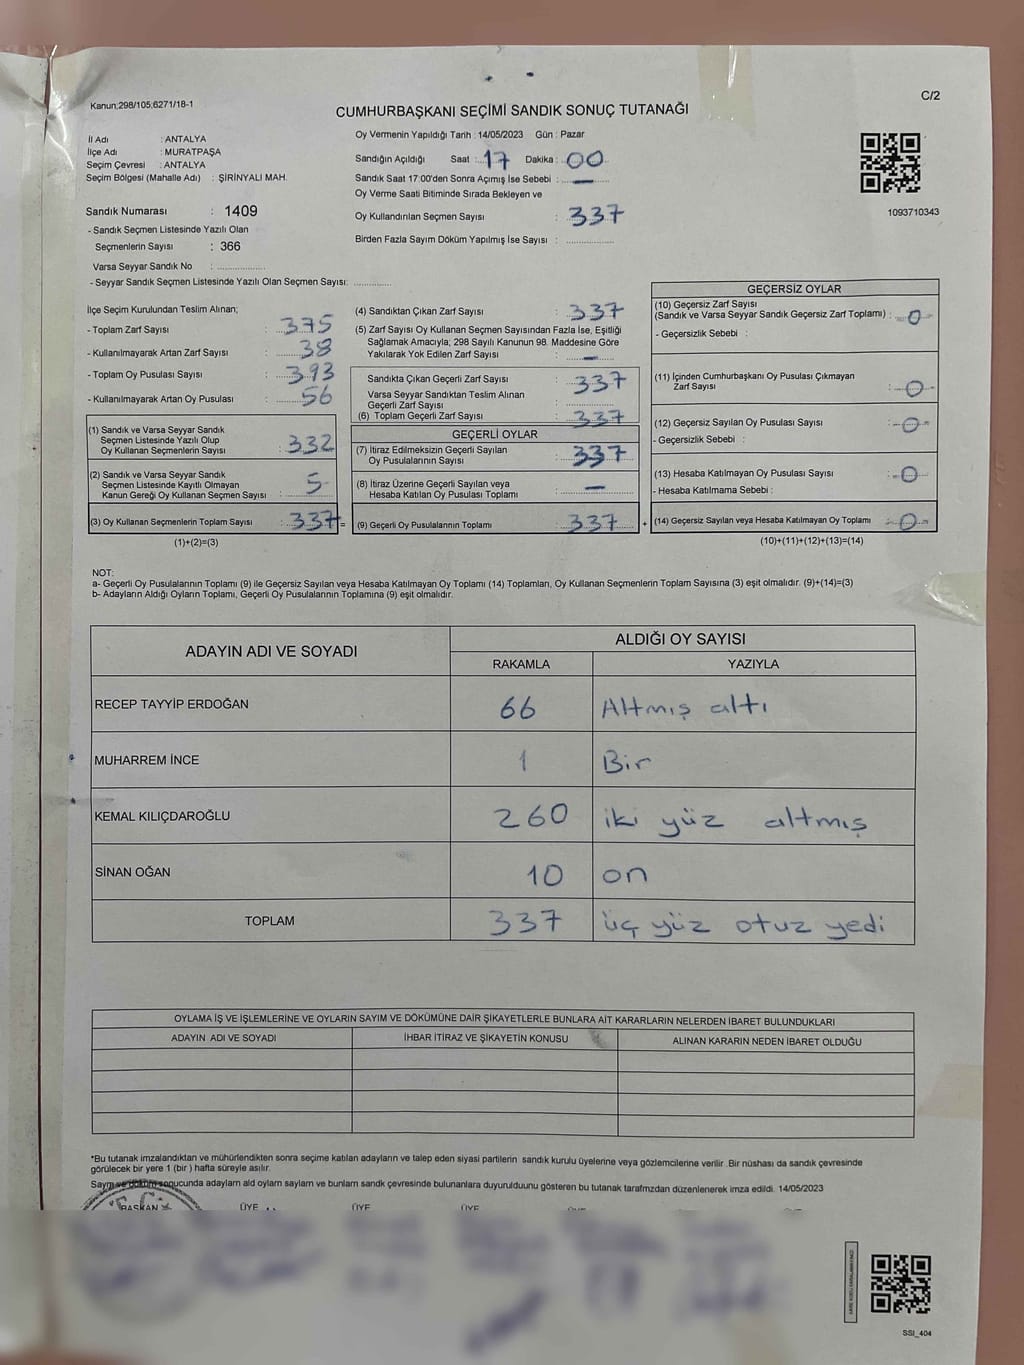 Kanun;298/105;6271/18-1
C/2
CUMHURBAŞKANI SEÇİMİ SANDIK SONUÇ TUTANAĞI
İl Adı : ANTALYA
İlçe Adı : MURATPAŞA
Seçim Çevresi : ANTALYA
Seçim Bölgesi (Mahalle Adı) : ŞİRİNYALI MAH.
Sandık Numarası : 1409
- Sandık Seçmen Listesinde Yazılı Olan
Seçmenlerin Sayısı : 366
Varsa Seyyar Sandık No : ................
- Seyyar Sandık Seçmen Listesinde Yazılı Olan Seçmen Sayısı: .............
Oy Vermenin Yapıldığı Tarih : 14/05/2023 Gün : Pazar
Sandığın Açıldığı Saat : 17 Dakika : 00
Sandık Saat 17:00'den Sonra Açımış İse Sebebi : —
Oy Verme Saati Bitiminde Sırada Bekleyen ve
Oy Kullandırılan Seçmen Sayısı : 337
Birden Fazla Sayım Döküm Yapılmış İse Sayısı : ................
1093710343
İlçe Seçim Kurulundan Teslim Alınan;
- Toplam Zarf Sayısı : 375
- Kullanılmayarak Artan Zarf Sayısı : 38
- Toplam Oy Pusulası Sayısı : 393
- Kullanılmayarak Artan Oy Pusulası : 56
(1) Sandık ve Varsa Seyyar Sandık
Seçmen Listesinde Yazılı Olup
Oy Kullanan Seçmenlerin Sayısı : 332
(2) Sandık ve Varsa Seyyar Sandık
Seçmen Listesinde Kayıtlı Olmayan
Kanun Gereği Oy Kullanan Seçmen Sayısı : 5
(3) Oy Kullanan Seçmenlerin Toplam Sayısı : 337 =
(1)+(2)=(3)
(4) Sandıktan Çıkan Zarf Sayısı : 337
(5) Zarf Sayısı Oy Kullanan Seçmen Sayısından Fazla İse, Eşitliği
Sağlamak Amacıyla; 298 Sayılı Kanunun 98. Maddesine Göre
Yakılarak Yok Edilen Zarf Sayısı : —
Sandıkta Çıkan Geçerli Zarf Sayısı : 337
Varsa Seyyar Sandıktan Teslim Alınan
Geçerli Zarf Sayısı : ................
(6) Toplam Geçerli Zarf Sayısı : 337
GEÇERLİ OYLAR
(7) İtiraz Edilmeksizin Geçerli Sayılan
Oy Pusulalarının Sayısı : 337
(8) İtiraz Üzerine Geçerli Sayılan veya
Hesaba Katılan Oy Pusulası Toplamı : —
(9) Geçerli Oy Pusulalarının Toplamı : 337 +
GEÇERSİZ OYLAR
(10) Geçersiz Zarf Sayısı
(Sandık ve Varsa Seyyar Sandık Geçersiz Zarf Toplamı) : 0
- Geçersizlik Sebebi :
(11) İçinden Cumhurbaşkanı Oy Pusulası Çıkmayan
Zarf Sayısı : 0
(12) Geçersiz Sayılan Oy Pusulası Sayısı : 0
- Geçersizlik Sebebi :
(13) Hesaba Katılmayan Oy Pusulası Sayısı : 0
- Hesaba Katılmama Sebebi :
(14) Geçersiz Sayılan veya Hesaba Katılmayan Oy Toplamı : 0
(10)+(11)+(12)+(13)=(14)
NOT:
a- Geçerli Oy Pusulalarının Toplamı (9) ile Geçersiz Sayılan veya Hesaba Katılmayan Oy Toplamı (14) Toplamları, Oy Kullanan Seçmenlerin Toplam Sayısına (3) eşit olmalıdır. (9)+(14)=(3)
b- Adayların Aldığı Oyların Toplamı, Geçerli Oy Pusulalarının Toplamına (9) eşit olmalıdır.
ADAYIN ADI VE SOYADI ALDIĞI OY SAYISI
RAKAMLA YAZIYLA
RECEP TAYYİP ERDOĞAN 66 Altmış altı
MUHARREM İNCE 1 Bir
KEMAL KILIÇDAROĞLU 260 iki yüz altmış
SİNAN OĞAN 10 on
TOPLAM 337 üç yüz otuz yedi
OYLAMA İŞ VE İŞLEMLERİNE VE OYLARIN SAYIM VE DÖKÜMÜNE DAİR ŞİKAYETLERLE BUNLARA AİT KARARLARIN NELERDEN İBARET BULUNDUKLARI
ADAYIN ADI VE SOYADI İHBAR İTİRAZ VE ŞİKAYETİN KONUSU ALINAN KARARIN NEDEN İBARET OLDUĞU
*Bu tutanak imzalandıktan ve mühürlendikten sonra seçime katılan adayların ve talep eden siyasi partilerin sandık kurulu üyelerine veya gözlemcilerine verilir. Bir nüshası da sandık çevresinde
görülecek bir yere 1 (bir ) hafta süreyle asılır.
Sayım ve döküm sonucunda adaylam ald oylam saylam ve bunlam sandk çevresinde bulunanlara duyurulduunu gösteren bu tutanak tarafmzdan düzenlenerek imza edildi. 14/05/2023
BAŞKAN ÜYE ÜYE ÜYE ÜYE
SSI_404